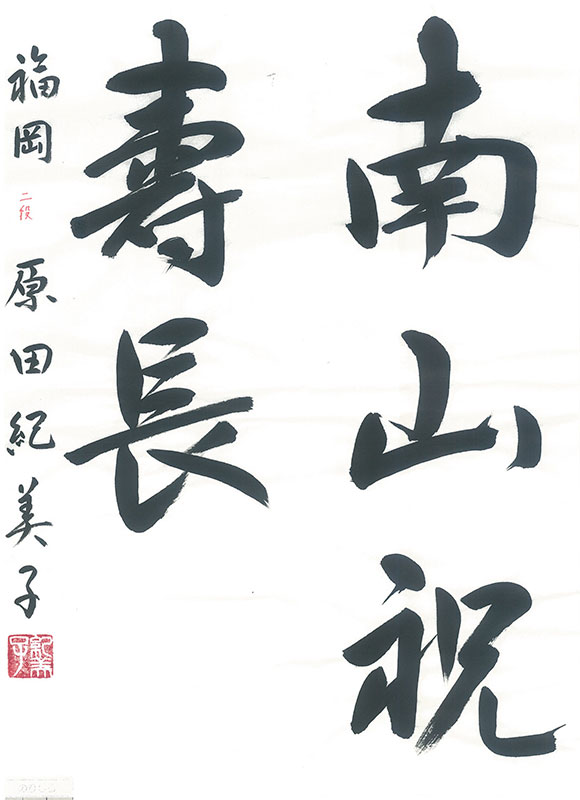 南山祝
壽長
福岡 二段 原田紀美子
紀美子